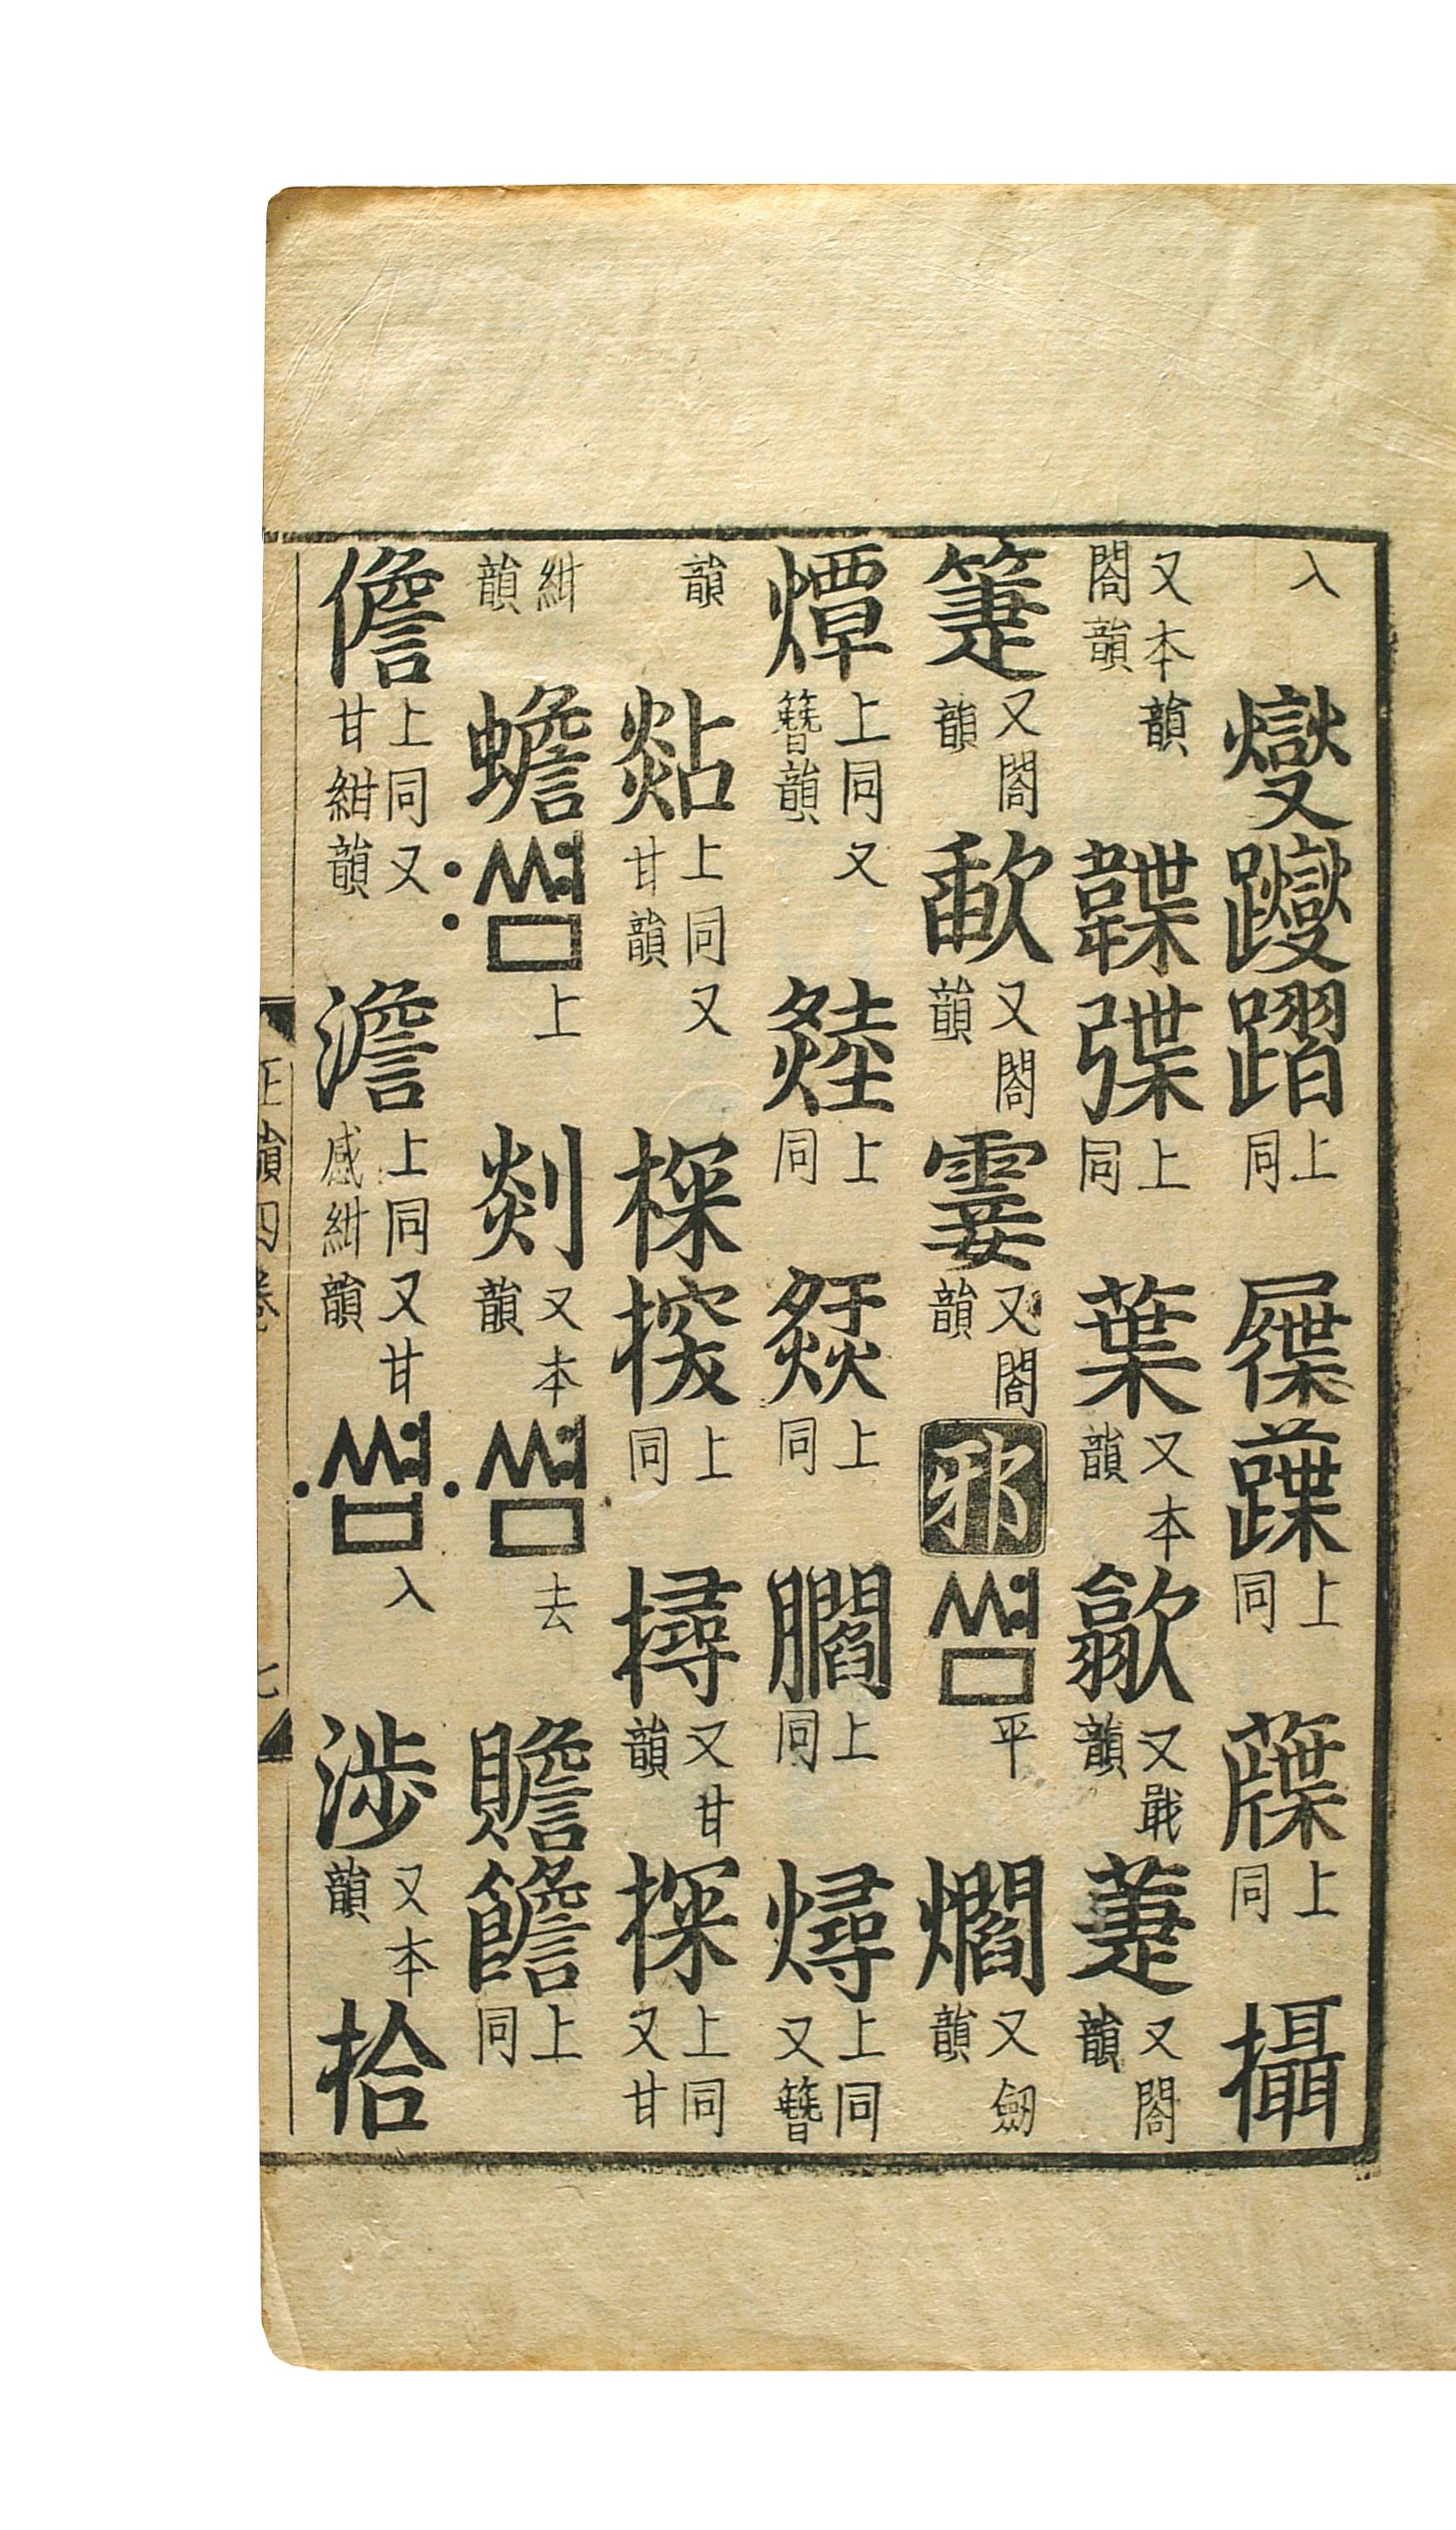 入 燮躞 上同 屧 上同 上同 攝
又本韻閤韻 韘弽 上同 葉 又本韻 歙 又戢韻 萐 又閤韻
箑 又閤韻 歃 又閤韻 霎 又閤韻 邪 쎰 平 爓 又劒韻
燂 上同又簪韻 上同 上同 上同 燖 上同又簪
韻 上同又甘韻 上同 撏 又甘韻 上同又甘
紺韻 蟾 〯쎰 上 剡 又本韻 〮쎰 去 贍 上同
儋 上同又甘紺韻 澹 上同又甘感紺韻 〮쎰 入 涉 又本韻 拾
正韻四卷 七